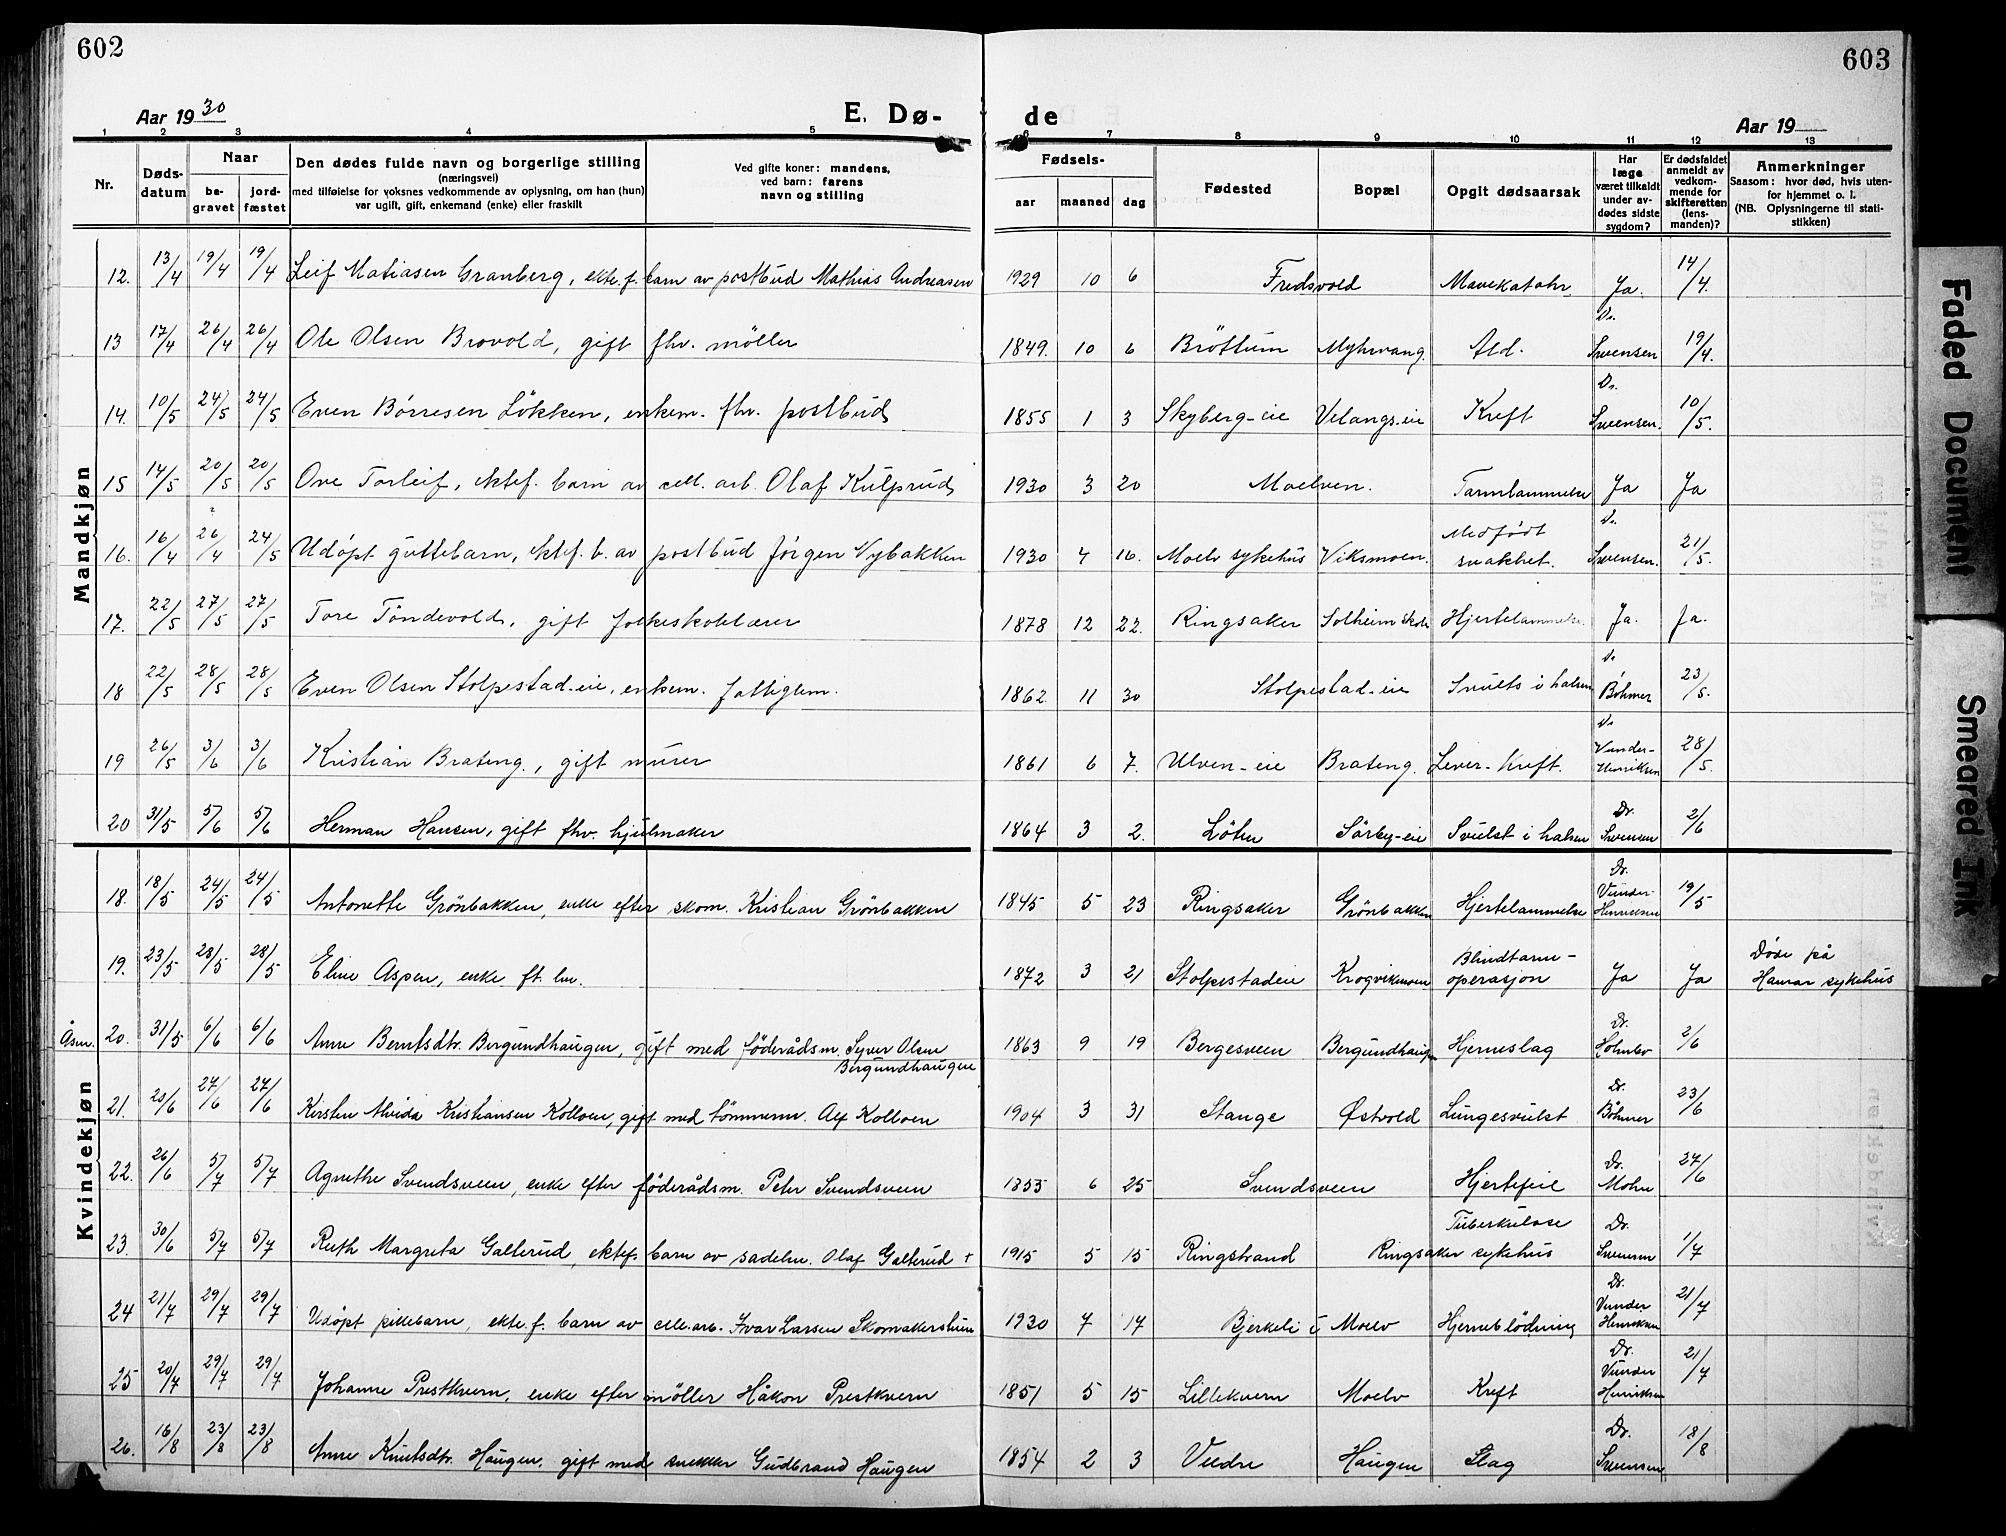 602
603
Aar 1930
E. Dø-
de
Aar 19
1 2 3 4 5 6 7 8 9 10 11 12 13
Nr.
Døds-
datum
Naar
be-
gravet
jord-
fæstet
Den dødes fulde navn og borgerlige stilling
(næringsvei)
med tilføielse for voksnes vedkommende av oplysning, om han (hun)
var ugift, gift, enkemand (enke) eller fraskilt
Ved gifte koner: mandens,
ved barn: farens
navn og stilling
Fødsels-
aar
maaned
dag
Fødested
Bopæl
Opgit dødsaarsak
Har
læge
været tilkaldt
under av-
dødes sidste
sygdom?
Er dødsfaldet
anmeldt av
vedkom-
mende for
skifteretten
(lens-
manden)?
Anmerkninger
Saasom: hvor død, hvis uten-
for hjemmet o. l.
(NB. Oplysningerne til stati-
stikken)
Mandkjøn
12. 13/4 19/4 19/4 Leif Matiasen Granberg, ekte.f. barn av postbud Mathias Andreasen 1929 10 6 Fredsvold Mavekatahr Ja. 14/4.
13 17/4 26/4 26/4 Ole Olsen Brovold, gift fhv. møller 1849. 10 6 Bröttum Myhrvang. Ald. Dr. Svensen 19/4.
14. 10/5 24/5 24/5 Even Børresen Løkken, enkem. fhv. postbud 1855 1 3 Skyberg-eie Velangs-eie Kreft Dr. Svensen. 10/5.
15 14/5 20/5 20/5 Ove Torleif, ektef. barn av cell. arb. Olaf Kulprud 1930 3 20 Moelven. Tarmlammelse Ja Ja
16. 16/4 26/4 24/5 Udöpt guttebarn, ektef. b. av postbud Jörgen Nybakken 1930 4 16. Moelv sykehus Viksmoen. Medfödt svakhet. Dr. Svensen. 21/5.
17. 22/5 27/5 27/5 Tore Töndevold, gift folkeskolelærer 1878 12 22. Ringsaker Solheim skole Hjertelammelse. Ja. Ja.
18 22/5 28/5 28/5 Even Olsen Stolpestad-eie, enkem. fattiglem. 1862. 11 30 Stolpestad-eie Svulst i halsen Dr Böhmer 23/5.
19 26/5 3/6 3/6 Kristian Brateng., gift murer 1861 6 7. Ulven-eie Brateng. Lever-kreft. Dr Vunder-Henriksen 28/5.
20 31/5 5/6 5/6 Herman Hansen, gift fhv. hjulmaker 1864 3 2. Löten Sörby-eie Svulst i halsen Dr. Svensen 2/6
Kvindekjøn
18. 18/5 24/5 24/5 Antonette Grönbakken, enke efter skom. Kristian Grönbakken 1845 5 23 Ringsaker Grönbakken Hjertelammelse Dr. Vunder-Henriksen 19/5
19. 23/5 28/5 28/5 Eline Aspen, enke ft. lm. 1872 3 21 Stolpestadeie Krogvikmoen Blindtarm-operasjon Ja Ja Döde på Hamar sykehus
Åsm. 20. 31/5 6/6 6/6 Anne Berntsdtr. Bergundhaugen, gift med föderådsm. Syver Olsen Bergundhaugen 1863 9 19 Bergesveen Bergundhaugen Hjerneslag Dr. 2/6
21. 20/6 27/6 27/6 Kirsten Alvida Kristiansen Kolloen, gift med tömmerm. Alf Kolloen 1904 3 31 Stange Østvold Lungesvulst Dr. Böhmer 23/6
22. 26/6 5/7 5/7 Agnethe Svendsveen, enke efter föderådsm. Peter Svendsveen 1853 6 25 Svendsveen Hjertefeil Dr. Mohn 27/6
23. 30/6 5/7 5/7 Ruth Margreta Galterud, ektef. barn av sadelm. Olaf Galterud + 1915 5 15 Ringstrand Ringsaker sykehus Tuberkulose Dr. Svensen 1/7
24 21/7 29/7 29/7 Udöpt pikebarn, ekte.f. barn av cell.arb. Ivar Larsen Skomakerstuen 1930 7 17 Bjerkeli i Moelv Hjerneblödning Dr. Vunder Henriksen 21/7
25 20/7 29/7 29/7 Johanne Prestkvern, enke efter möller Håkon Prestkvern 1851 5 15 Lillekvern Moelv Kreft Dr. Vunder Henriksen 21/7
26. 16/8 23/8 23/8 Anne Knutsdtr. Haugen, gift med snekker Gudbrand Haugen 1854 2 3 Veldre Haugen Slag Dr. Svensen 18/8
Faded Document
Smeared Ink